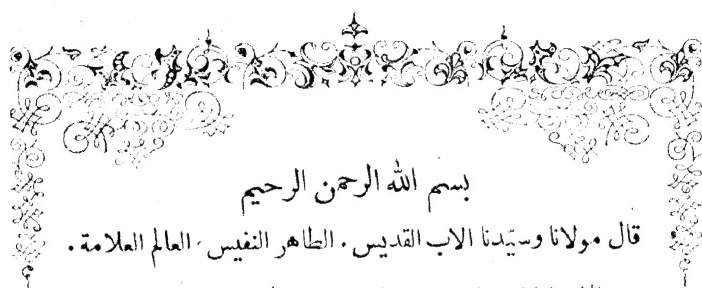 بسم الله الرحمن الرحيم
قال مولانا وسيّدنا الاب القديس . الطاهر النفيس . العالم العلامة .